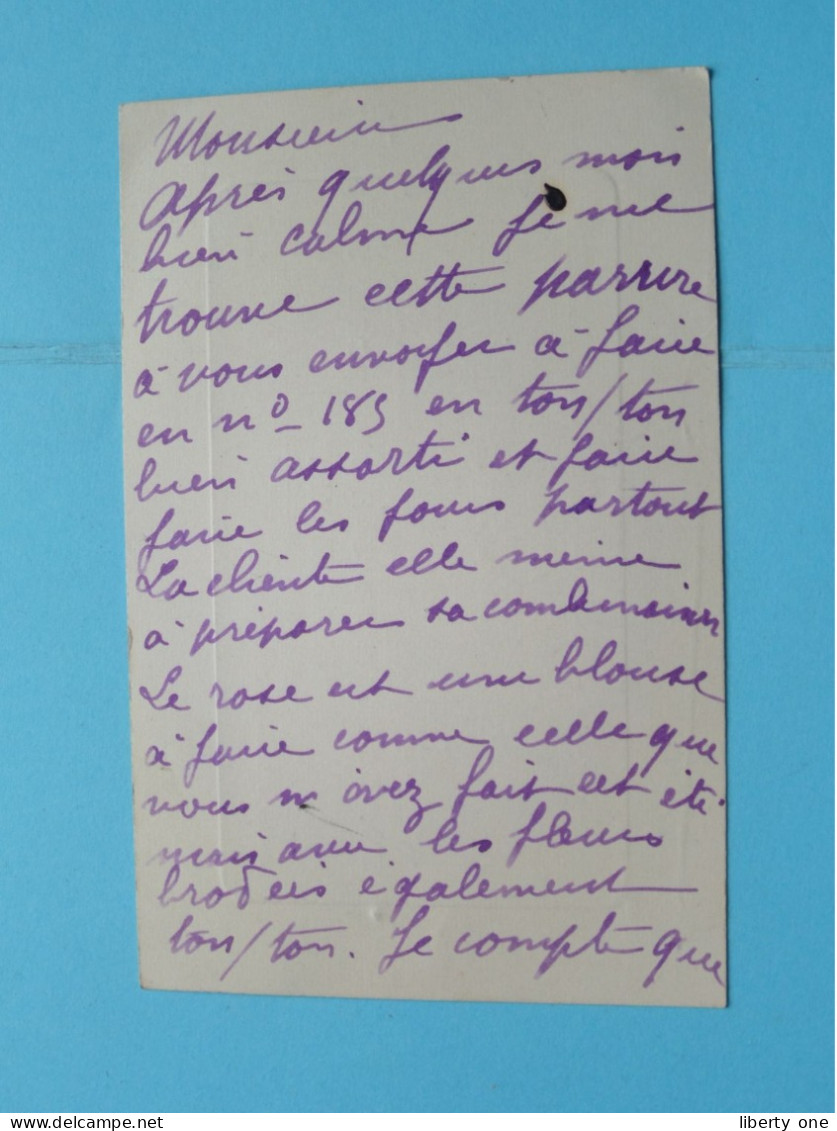 Monsieur
Après quelques mois
bien calme je me
trouve cette parrure
à vous envoyer à faire
en n° 185 en ton/ton
bien assorti et faire
faire les jours partout
La cliente elle meme
à préparer sa combinaison
Le rose est une blouse
à faire comme celle que
vous m'avez fait cet été
mais avec les fleurs
brodeés également
ton/ton. Je compte que
liberty one